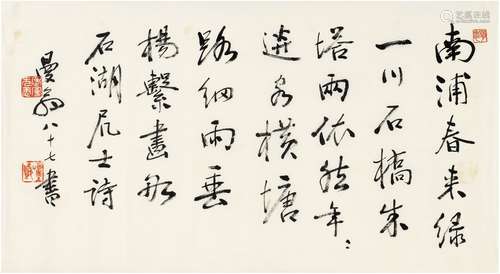 南浦春来绿
一川石橋朱
塔兩依然年〻
送客横塘
路细雨垂
楊繫畫船
石湖居士詩
曼翁八十七書